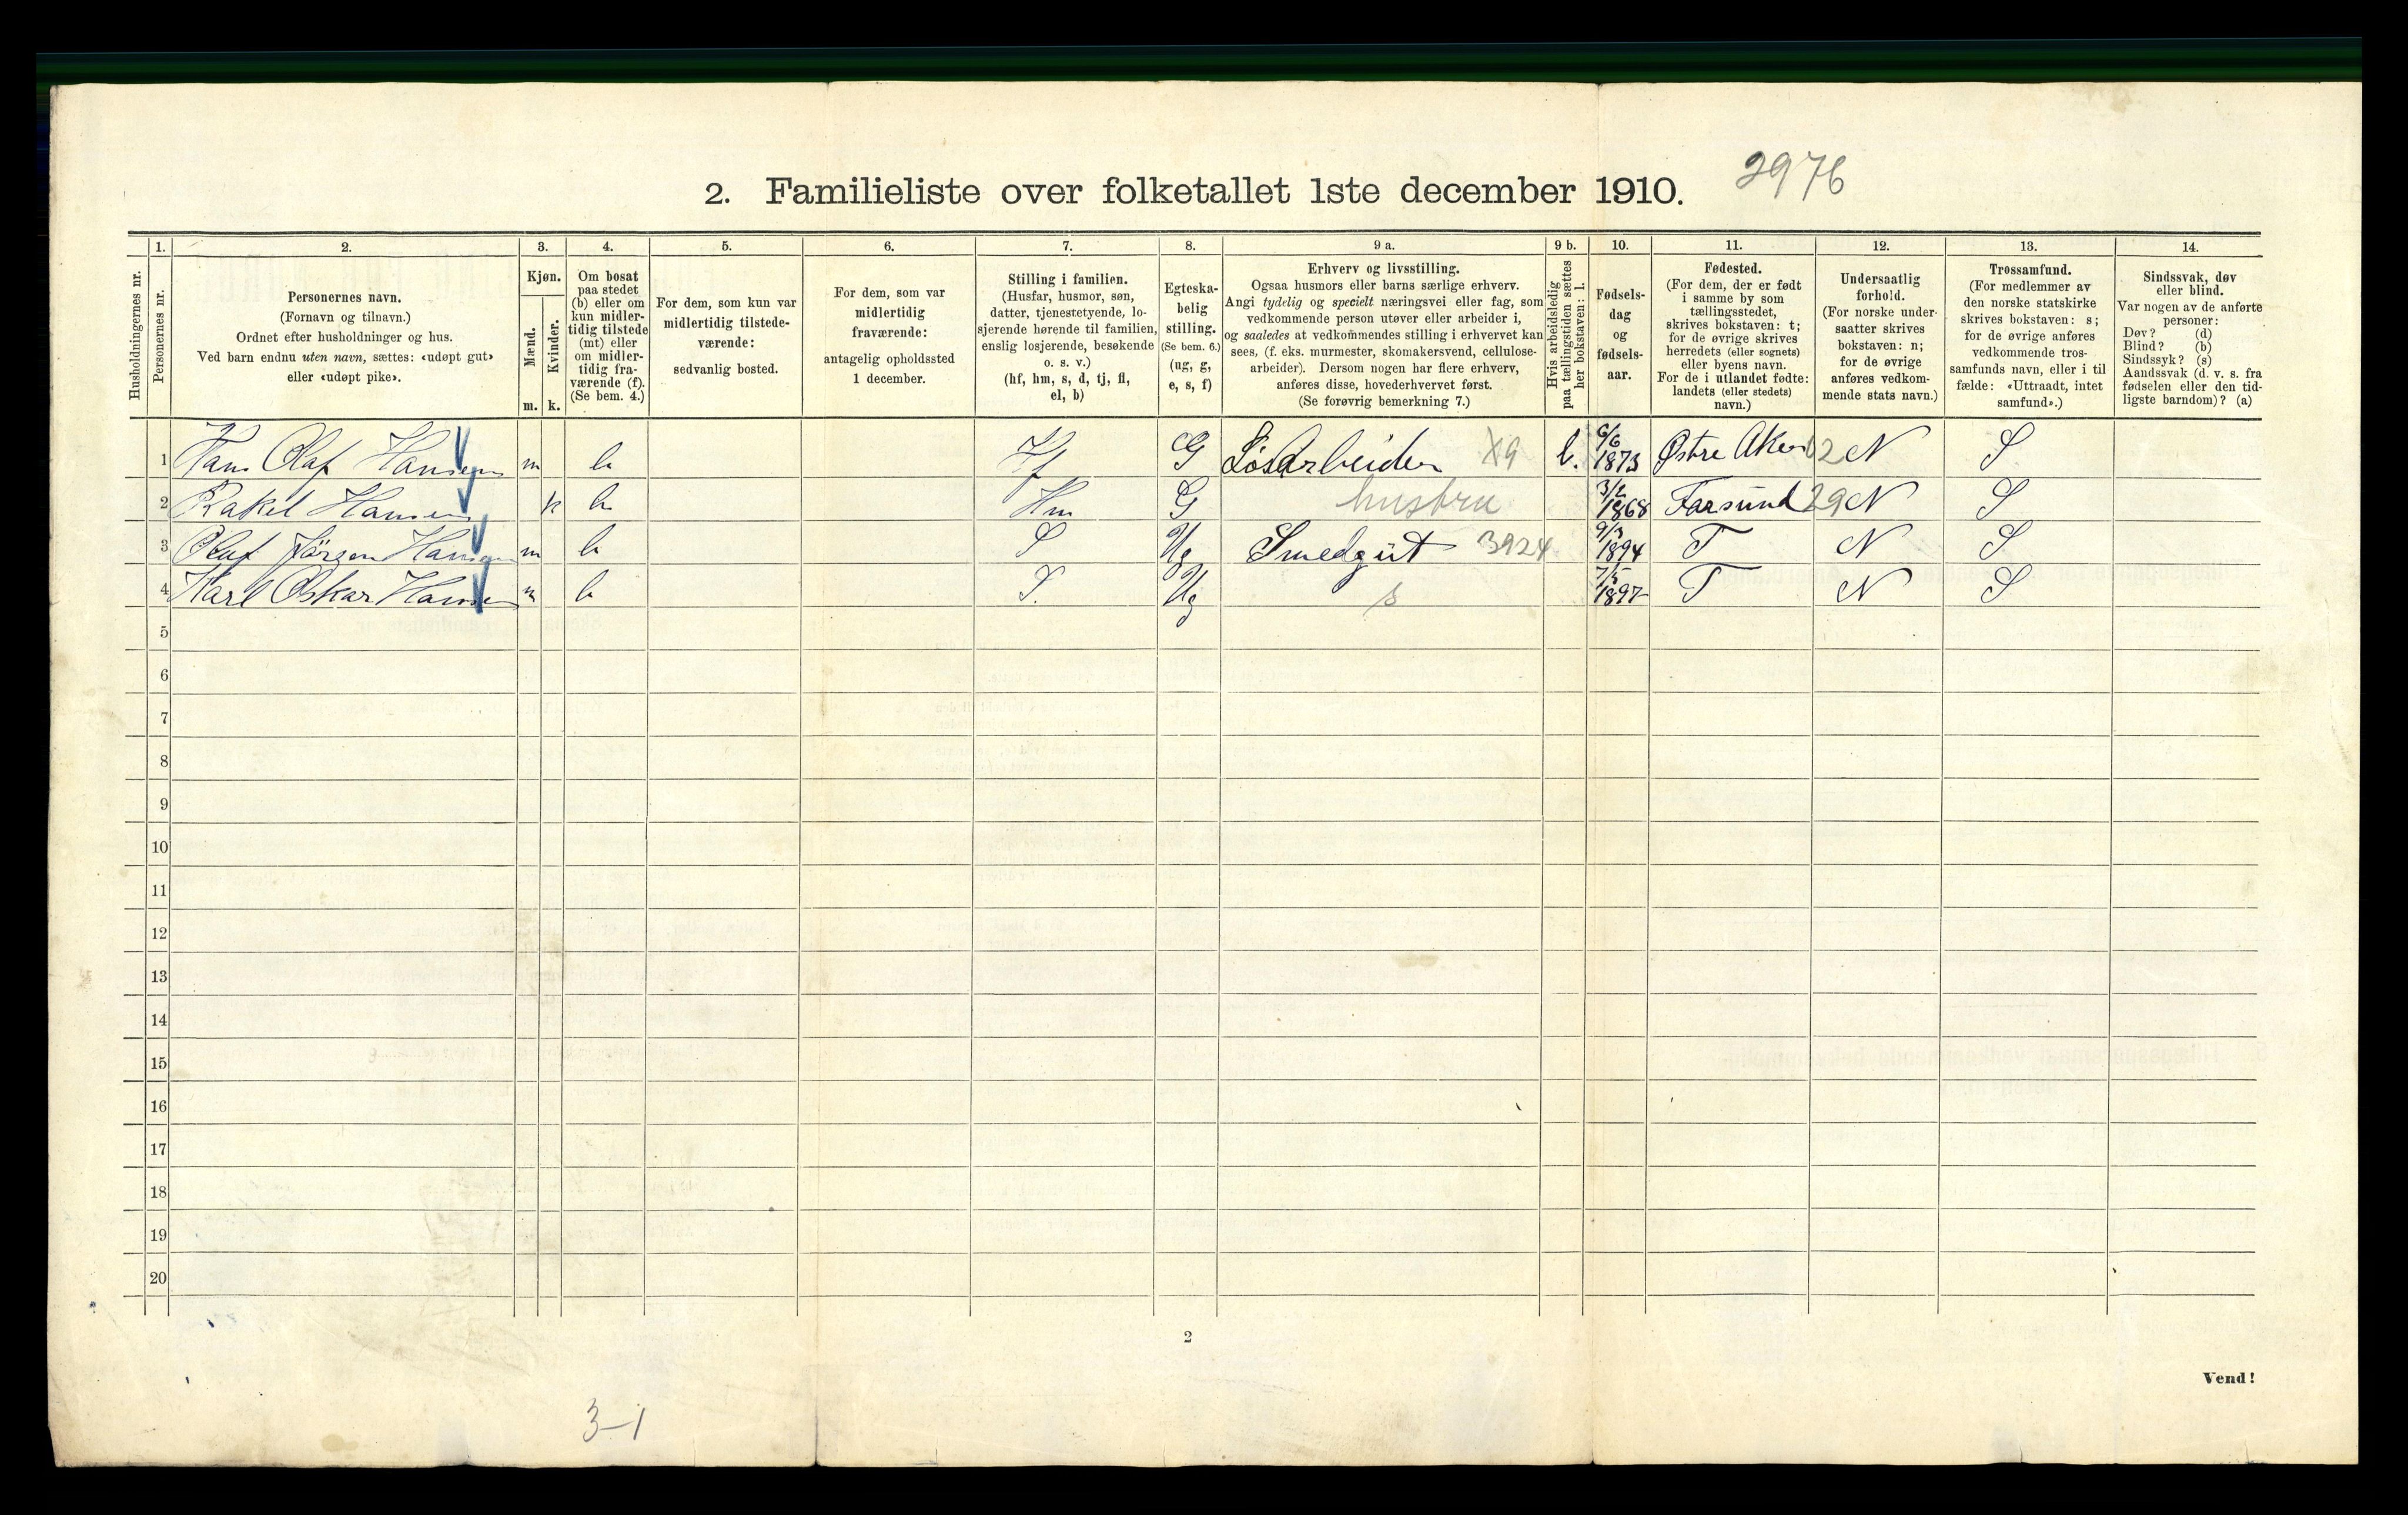 2. Familieliste over folketallet 1ste december 1910. 2976
Husholdningernes nr.
1. Personernes nr.
2. Personernes navn. (Fornavn og tilnavn.) Ordnet efter husholdninger og hus. Ved barn endnu uten navn, sættes: «udøpt gut» eller «udøpt pike».
3. Kjøn. Mænd. m. Kvinder. k.
4. Om bosat paa stedet (b) eller om kun midler-tidig tilstede (mt) eller om midler-tidig fra-værende (f). (Se bem. 4.)
5. For dem, som kun var midlertidig tilstede-værende: sedvanlig bosted.
6. For dem, som var midlertidig fraværende: antagelig opholdssted 1 december.
7. Stilling i familien. (Husfar, husmor, søn, datter, tjenestetyende, lo-sjerende hørende til familien, enslig losjerende, besøkende o. s. v.) (hf, hm, s, d, tj, fl, el, b)
8. Egteska-belig stilling. (Se bem. 6.) (ug, g, e, s, f)
9 a. Erhverv og livsstilling. Ogsaa husmors eller barns særlige erhverv. Angi tydelig og specielt næringsvei eller fag, som vedkommende person utøver eller arbeider i, og saaledes at vedkommendes stilling i erhvervet kan sees, (f. eks. murmester, skomakersvend, cellulose-arbeider). Dersom nogen har flere erhverv, anføres disse, hovederhvervet først. (Se forøvrig bemerkning 7.)
9 b. Hvis arbeidsledig paa tællingstiden sættes her bokstaven: l.
10. Fødsels-dag og fødsels-aar.
11. Fødested. (For dem, der er født i samme by som tællingsstedet, skrives bokstaven: t; for de øvrige skrives herredets (eller sognets) eller byens navn. For de i utlandet fødte: landets (eller stedets) navn.)
12. Undersaatlig forhold. (For norske under-saatter skrives bokstaven: n; for de øvrige anføres vedkom-mende stats navn.)
13. Trossamfund. (For medlemmer av den norske statskirke skrives bokstaven: s; for de øvrige anføres vedkommende tros-samfunds navn, eller i til fælde: «Uttraadt, intet samfund».)
14. Sindssvak, døv eller blind. Var nogen av de anførte personer: Døv? (d) Blind? (b) Sindssyk? (s) Aandssvak (d. v. s. fra fødselen eller den tid-ligste barndom)? (a)
1 Hans Olaf Hansen m b Hf G Løsarbeider X9 l. 6/6 1873 Østre Aker 02 N S
2 Rakel Hansen k b Hm G hustru 3/2 1868 Farsund 29 N S
3 Olaf Jörgen Hansen m b S Ug Smedgut 3924 9/3 1894 T N S
4 Karl Oskar Hansen m b S. Ug s 7/5 1897 T N S
5
6
7
8
9
10
11
12
13
14
15
16
17
18
19
20
2
Vend!
3-1